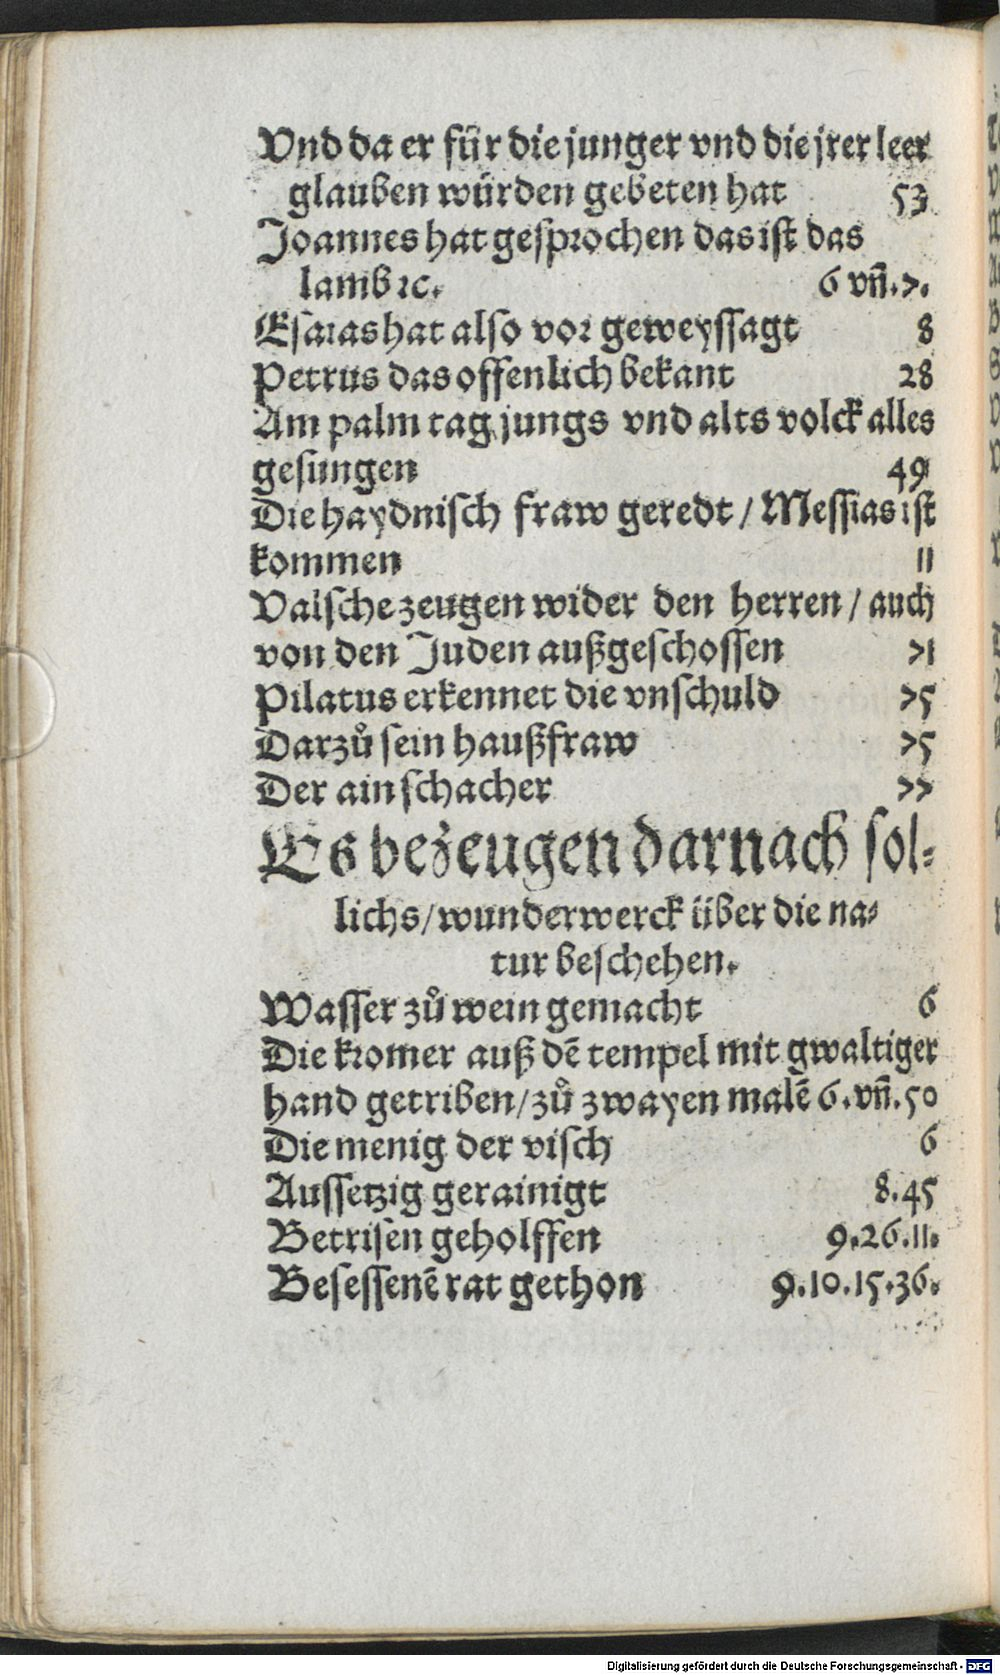 Vnd da er für die junger vnd die jrer leer
glauben würden gebeten hat 53
Joannes hat gesprochen das ist das
lamb ꝛc. 6 vñ.7.
Esaias hat also vor geweyssagt 8
Petrus das offenlich bekant 28
Am palm tag jungs vnd alts volck alles
gesungen 49
Die haydnisch fraw geredt / Messias ist
kommen 11
Valsche zeugen wider den herren / auch
von den Juden außgeschossen 71
Pilatus erkennet die vnschuld 75
Darzuͦ sein haußfraw 75
Der ain schacher 77
Es bezeugen darnach sol-
lichs/wunderwerck über die na-
tur beschehen.
Wasser zuͦ wein gemacht 6
Die kromer auß dē tempel mit gwaltiger
hand getriben/zuͦ zwayen malē 6.vñ.50
Die menig der visch 6
Aussetzig gerainigt 8.45
Betrisen geholffen 9.26.11.
Besessenē rat gethon 9.10.15.36.
Digitalisierung gefördert durch die Deutsche Forschungsgemeinschaft - DFG